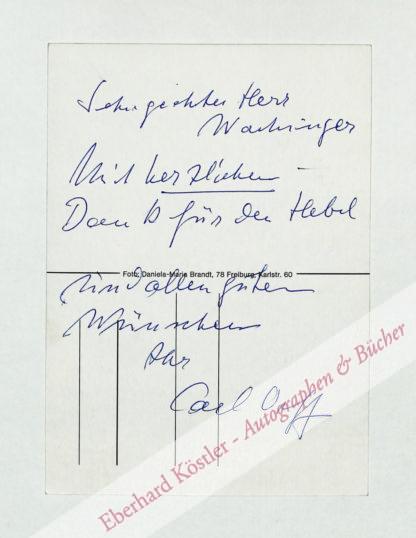 Sehr geehrter Herr
Wachinger
Mit herzlichem
Dank für den Hebel
Foto: Daniela-Maria Brandt, 78 Freiburg, Karlstr. 60
und allen guten
Wünschen
Ihr
Carl Orff
Eberhard Köstler - Autographen & Bücher